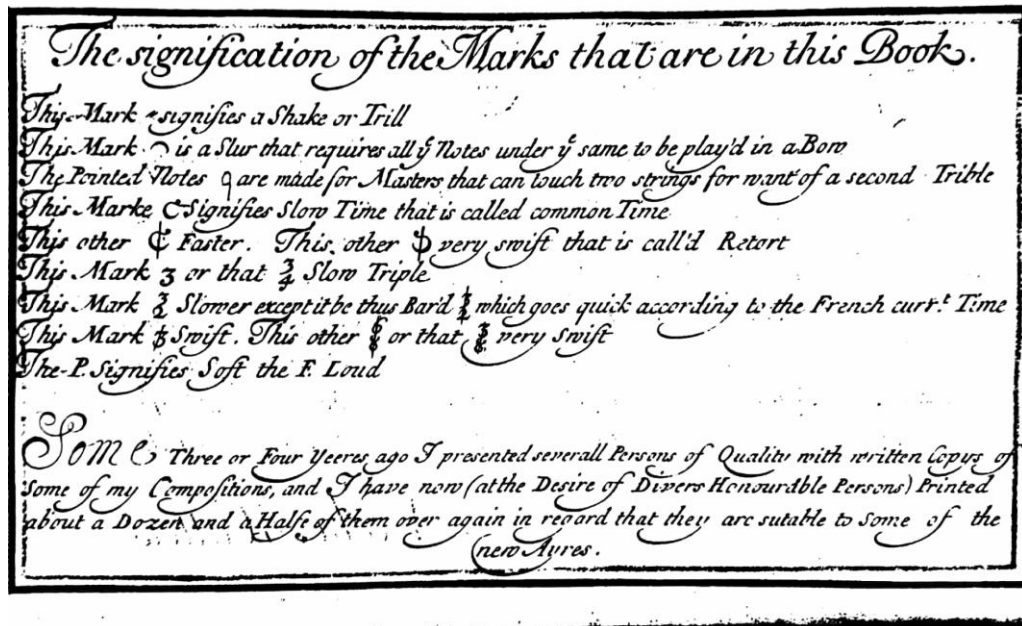 The signification of the Marks that are in this Book.
This Mark signifies a Shake or Trill
This Mark ⌒ is a Slur that requires all yͤ Notes under yͤ same to be play'd in a Bow
The Pointed Notes are made for Masters that can touch two strings for want of a second Trible
This Marke C Signifies Slow Time that is called common Time
This other ₵ Faster. This other very swift that is call'd Retort
This Mark 3 or that 3/4 Slow Triple
This Mark 3/2 Slower except it be thus Bard which goes quick according to the French curr.ᵗ Time
This Mark Swift. This other or that very Swift
The P. Signifies Soft the F. Loud
Some Three or Four Yeeres ago I presented severall Persons of Quality with written Copys of
Some of my Compositions, and I have now (at the Desire of Divers Honourable Persons) Printed
about a Dozen and a Halfe of them over again in regard that they are sutable to Some of the
new Ayres.